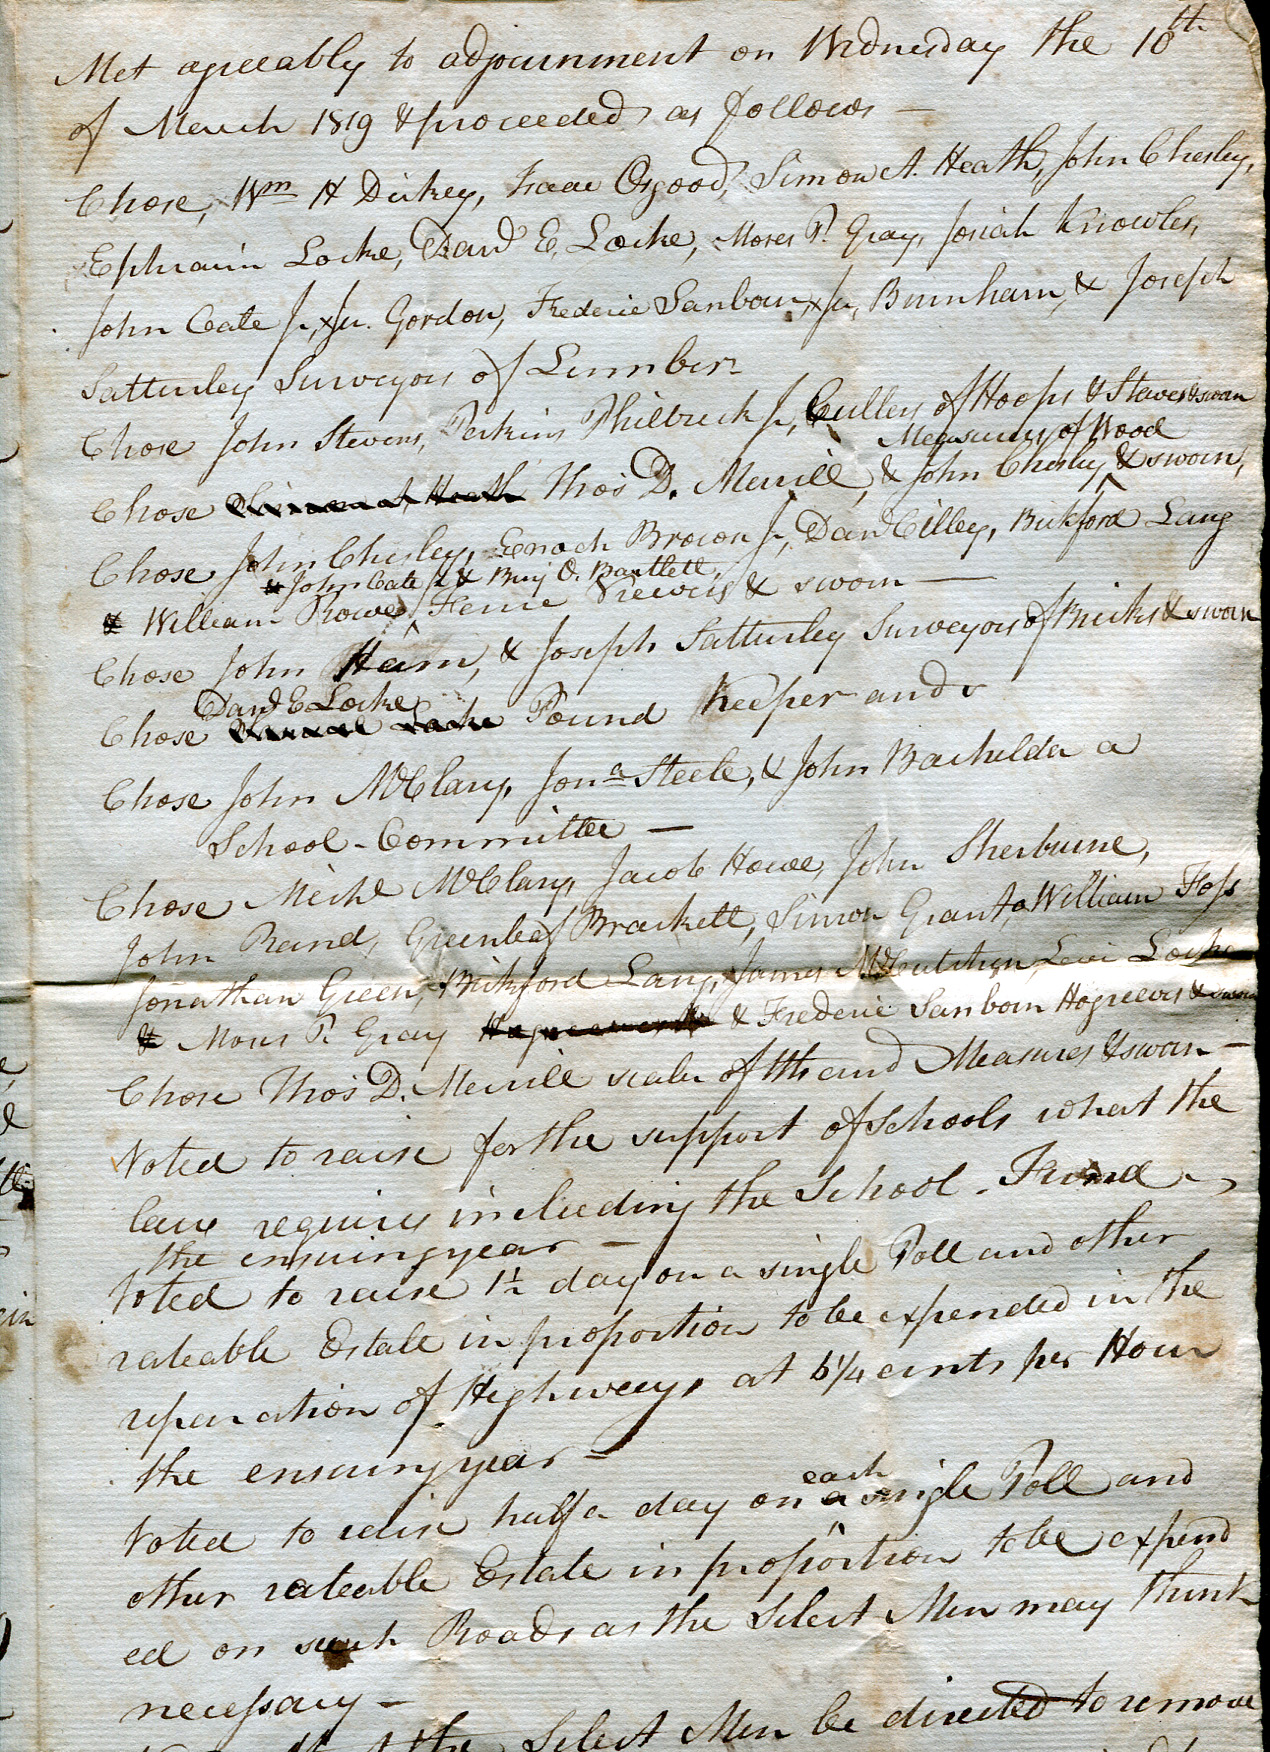 Met agreeably to adjournment on Wednesday the 10th
of March 1819 & proceeded as follows —
Chose, Wm H Dickey, Isaac Osgood, Simon A. Heath, John Chesley,
Ephraim Locke, David E. Locke, Moses P. Gray, Josiah Knowles,
John Cate Jr, Jr. Gordon, Frederic Sanborn, Jr, Burnham, & Joseph
Satturley Surveyors of Lumber
Chose John Stevens, Perkins Philbrick Jr, Cullers of Hoops & Staves & sworn
Measurers of Wood
Chose Simeon A. Heath Thos D. Merrill, & John Chesley & sworn,
Chose John Chesley, Enoch Brown Jr, Danl Cilley, Bickford Lang
& John Cate Jr & Benj O. Bartlett,
& William Rowe, Fence Viewers & sworn —
Chose John Ham, & Joseph Satturley Surveyors of Bricks & sworn
David E Locke
Chose Locke Pound Keeper and
Chose John McClary, Jona Steele, & John Bachelder a
School-Committee —
Chose Michl McClary, Jacob Howe, John Sherburne,
John Rand, Greenleaf Brackett, Simon Grant, William Foss
Jonathan Green, Bickford Lang, James McCutchen, Levi Locke
& Moses P. Gray Hogreeves & Frederic Sanborn Hogreeves & sworn
Chose Thos D. Merrill sealer of Wts and Measures & sworn —
Voted to raise for the support of schools what the
law requires including the School-Fund
the ensuing year —
Voted to raise 1½ day on a single Poll and other
rateable Estate in proportion to be expended in the
reparation of Highways at 6¼ cents per Hour
the ensuing year —
each
Voted to raise half a day on a single Poll and
other rateable Estate in proportion to be expend
ed on such Roads as the Select Men may think
necessary —
the Select Men be directed to remove